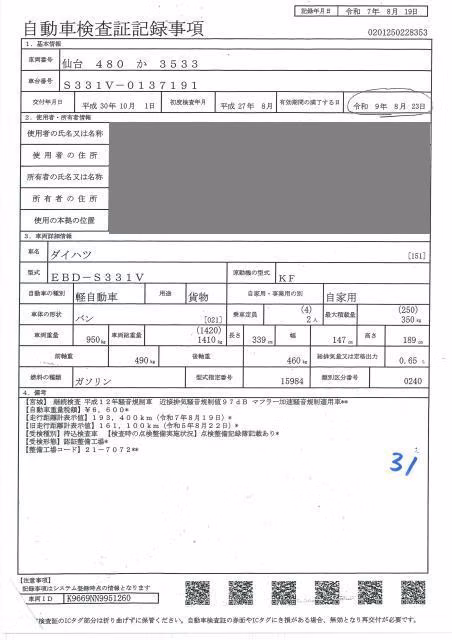 記録年月日 令和 7年 8月 19日
自動車検査証記録事項
0201250228353
1．基本情報
車両番号 仙台 480 か 3533
車台番号 S331V-0137191
交付年月日 平成30年10月 1日 初度検査年月 平成27年 8月 有効期間の満了する日 令和 9年 8月 23日
2．使用者・所有者情報
使用者の氏名又は名称
使用者の住所
所有者の氏名又は名称
所有者の住所
使用の本拠の位置
3．車両詳細情報
車名 ダイハツ [151]
型式 EBD-S331V 原動機の型式 KF
自動車の種別 軽自動車 用途 貨物 自家用・事業用の別 自家用
車体の形状 バン [021] 乗車定員 (4) 2人 最大積載量 (250) 350kg
車両重量 950kg 車両総重量 (1420) 1410kg 長さ 339cm 幅 147cm 高さ 189cm
前軸重 490kg 後軸重 460kg 総排気量又は定格出力 0.65L
燃料の種類 ガソリン 型式指定番号 15984 類別区分番号 0240
4．備考
【宮城】 継続検査 平成12年騒音規制車 近接排気騒音規制値97dB マフラー加速騒音規制適用車**
【自動車重量税額】￥6,600*
【走行距離計表示値】193,400km（令和7年8月19日）*
【旧走行距離計表示値】161,100km（令和5年8月22日）*
【受検種別】持込検査車 【検査時の点検整備実施状況】点検整備記録簿記載あり*
【受検形態】認証整備工場*
【整備工場コード】21-7072**
31
【注意事項】
記録事項はシステム登録時点の情報となります
車両ID K9669NN9951260
*検査証のICタグ部分は折り曲げずに保管ください。自動車検査証の券面やICタグにき損がある場合、無効となり再交付が必要です。